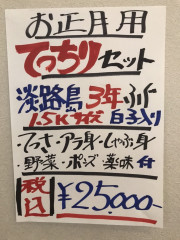 お正月用
てっちりセット
淡路島3年ふぐ
1.5Kサイズ 白子入り
・てっさ・アラ身・しゃぶ身
・野菜・ポン酢・薬味付
税込 ¥25,000-